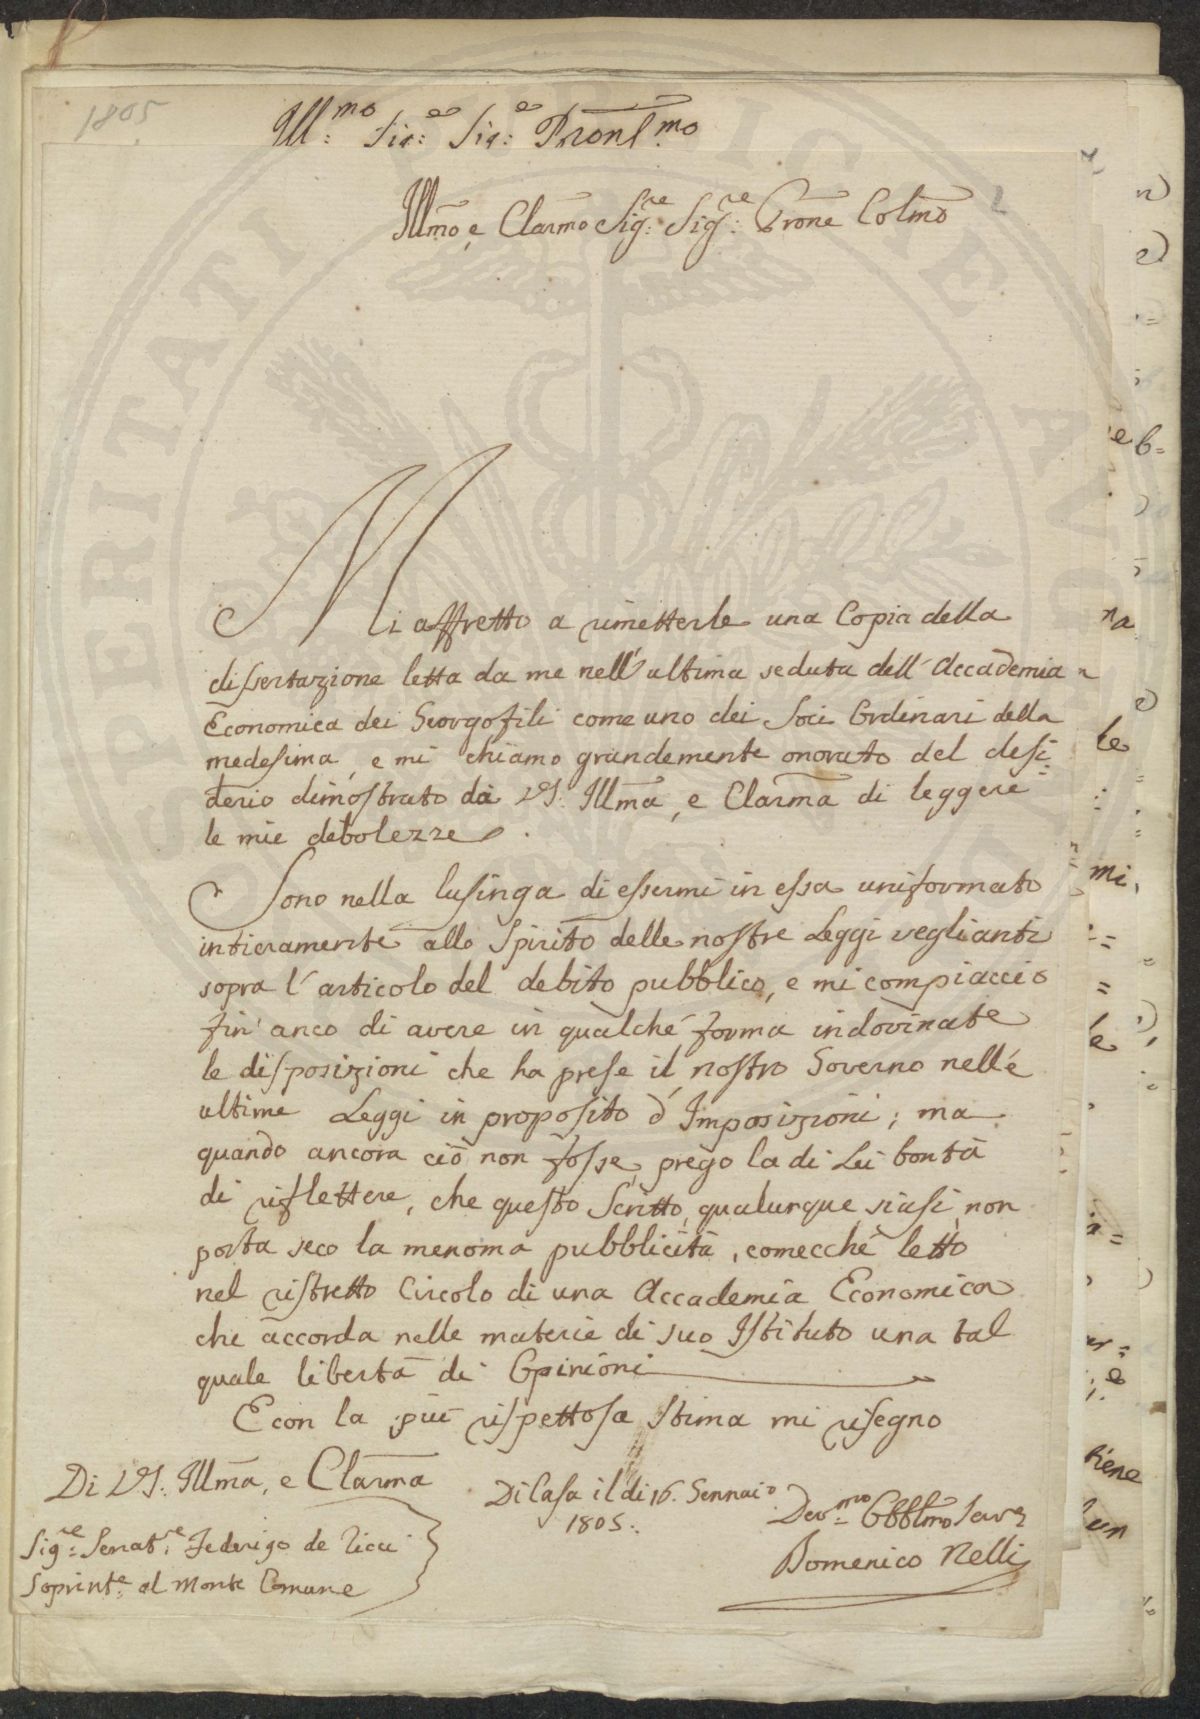 1805
Ill:mo Sig:e Sig:e Pronl:mo
2
Illmo, e Clarmo Sig:re Sig:re Prone Colmo
Mi affretto a rimetterle una Copia della
dissertazione letta da me nell'ultima seduta dell'Accademia
Economica dei Georgofili come uno dei Soci Ordinari della
medesima, e mi chiamo grandemente onorato del desi=
derio dimostrato da VS. Illma, e Clarma di leggere
le mie debolezze.
Sono nella lusinga di essermi in essa uniformato
intieramente allo Spirito delle nostre Leggi veglianti
sopra l'articolo del debito pubblico, e mi compiaccio
fin'anco di avere in qualche forma indovinate
le disposizioni che ha prese il nostro Governo nelle
ultime Leggi in proposito d'Imposizioni; ma
quando ancora ciò non fosse, prego la di Lei bontà
di riflettere, che questo Scritto, qualunque siasi non
porta seco la menoma pubblicità, comecchè letto
nel ristretto Circolo di una Accademia Economica
che accorda nelle materie di suo Istituto una tal
quale libertà di Opinioni
E con la più rispettosa stima mi rasegno
Di VS. Illma, e Clarma
Di Casa il di 16. Gennaio
1805.
Sig:re Senat:re Federigo de Ricci
Soprint:e al Monte Comune
Dev:mo Obblmo Serv
Domenico Nelli